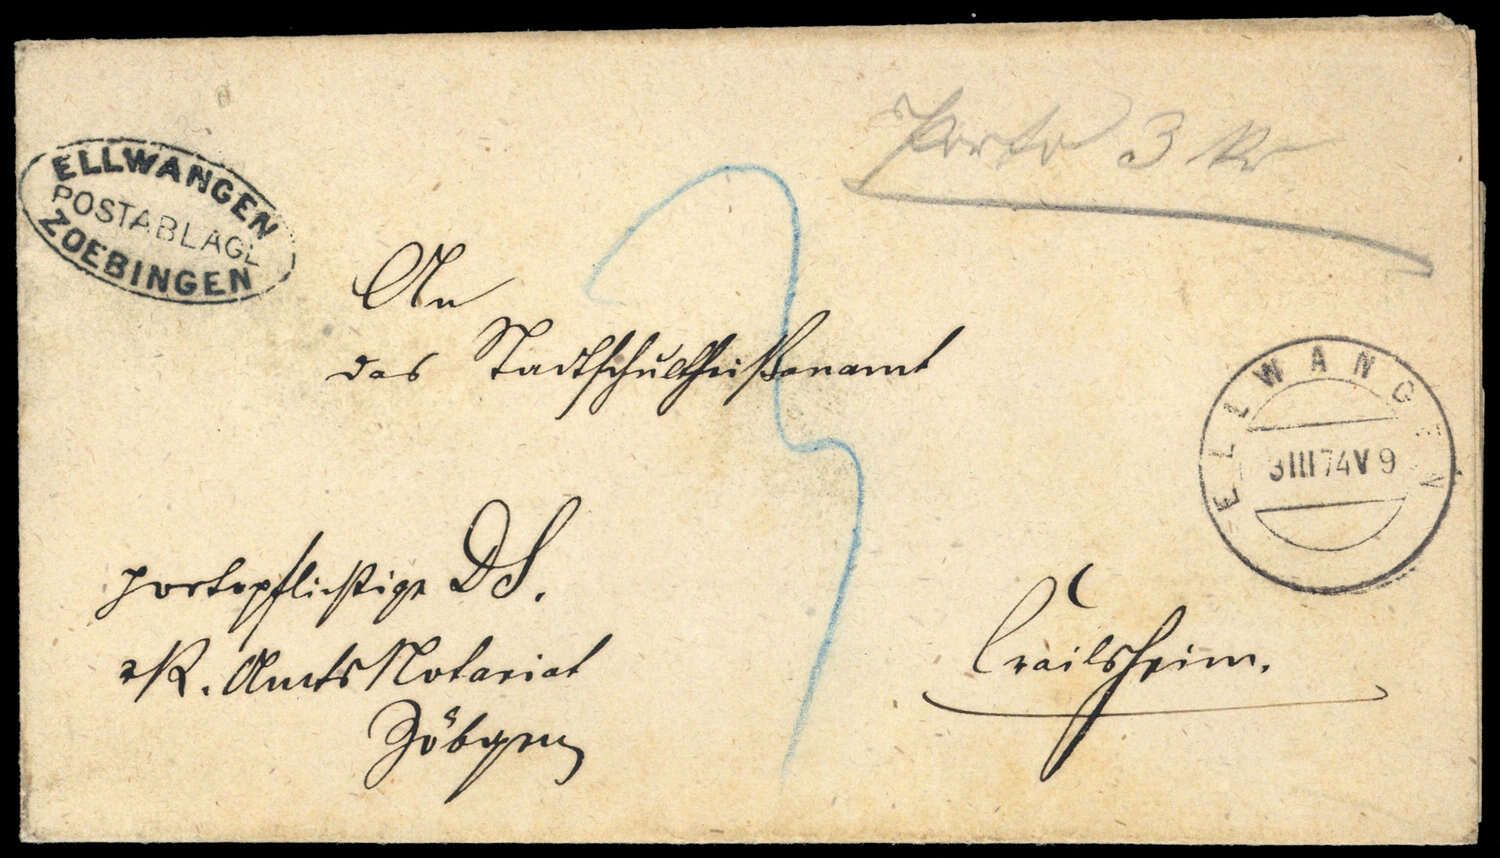 Porto 3 kr
ELLWANGEN
POSTABLAGE
ZOEBINGEN
3
An
das Stadtschultheißenamt
ELLWANGEN
3 III 74 V 9
portopflichtige DS.
K. AmtsNotariat
Zöbgen
Crailsheim.